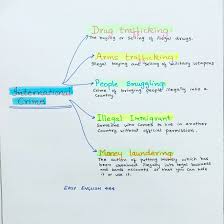 Drug trafficking:
The buying or selling of illegal drugs.
Arms trafficking:
Illegal buying and selling of military weapons
People Smuggling:
Crime of bringing people illegally into a
country.
International
Crimes
Illegal Immigrant:
Someone who comes to live in another
country without official permission.
Money laundering:
The action of putting money which has
been obtained illegally into legal business
and bank accounts so that you can
it or use it.
EASY ENGLISH 4All